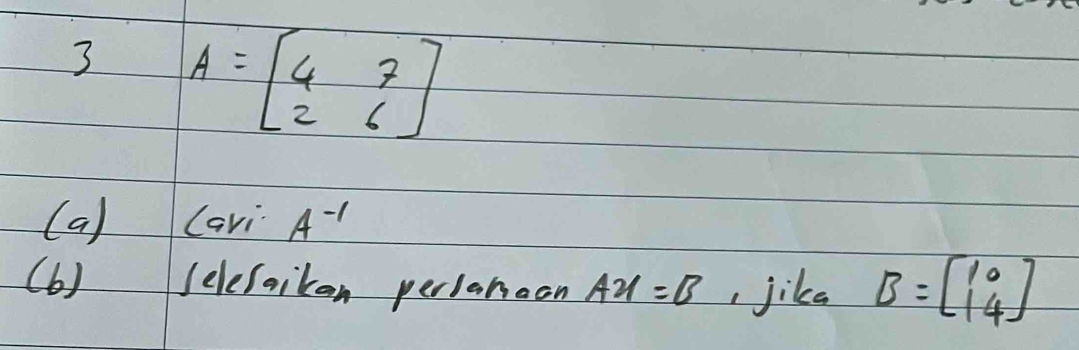 3 A = [4 7
2 6]
(a) Cari A⁻¹
(b) Selesaikan persamaan Ax = B, jika B = [10
14]